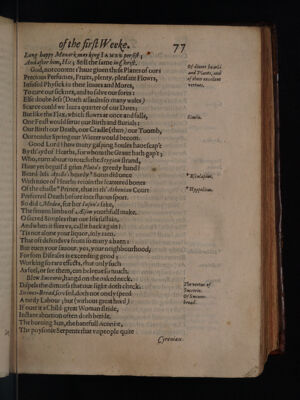 of the first Weeke. 77
Long happy Monark may king IAMES persist;
And after him, His; still the same in Christ.
God, not content t'have given these Plants of ours
Precious Perfumes, Fruits, plenty, pleasant Flowers,
Infused Physick in their leaues and Mores,
To cure our sicknes, and to salve our sores:
Else doubtless (Death assaults so many waies)
Scarce could we liue a quarter of our Daies;
But like the Flax, which flowers at once and falls,
One Feast would serue our Birth and Burials:
Our Birth our Death, our Cradle (then) our Toomb,
Our tender Spring our Winter would become.
Good Lord! how many gasping Soules haue scap't
By th'ayd of Hearbs, for whom the Graue had gap't;
Who, euen about to touch the Stygian strand,
Haue yet beguil'd grim Pluto's greedy hand!
Beard-les Apollo's beardy Son did once
With iuice of Hearbs reioyn the scattered bones
Of the chaste Prince, that in th' Athenian Court
Preferred Death before incestuous sport.
So did Medea, for her Iason's sake,
The frozen limbs of Æson youthfull make.
O sacred Simples that our life sustain,
And when it flies vs, call it back again!
'Tis not alone your liquor, inly taen,
That oft defends vs from so many a baen:
But euen your sauour, yea, your neighbourhood,
For som Diseases is exceeding good;
Working so rare effects, that only such
As feel, or see them, can beleeue so much.
Blew Succory, hang'd on the naked neck,
Dispels the dimnes that our sight doth check.
Swines-Bread, so vsed, doth not onely speed
A tardy Labour; but (without great heed)
If ouer it a Childe-great Woman stride,
Instant abortion often doth betide.
The burning Sun, the banefull Aconite,
The poysonie Serpents that vnpeople quite
Cyrenian
Of diuers hearbs
and Plants, and
of their excellent
vertues.
Simile.
* Æsculapius.
* Hippolitus.
The vertue of
Succorie.
Of Swines-
bread.